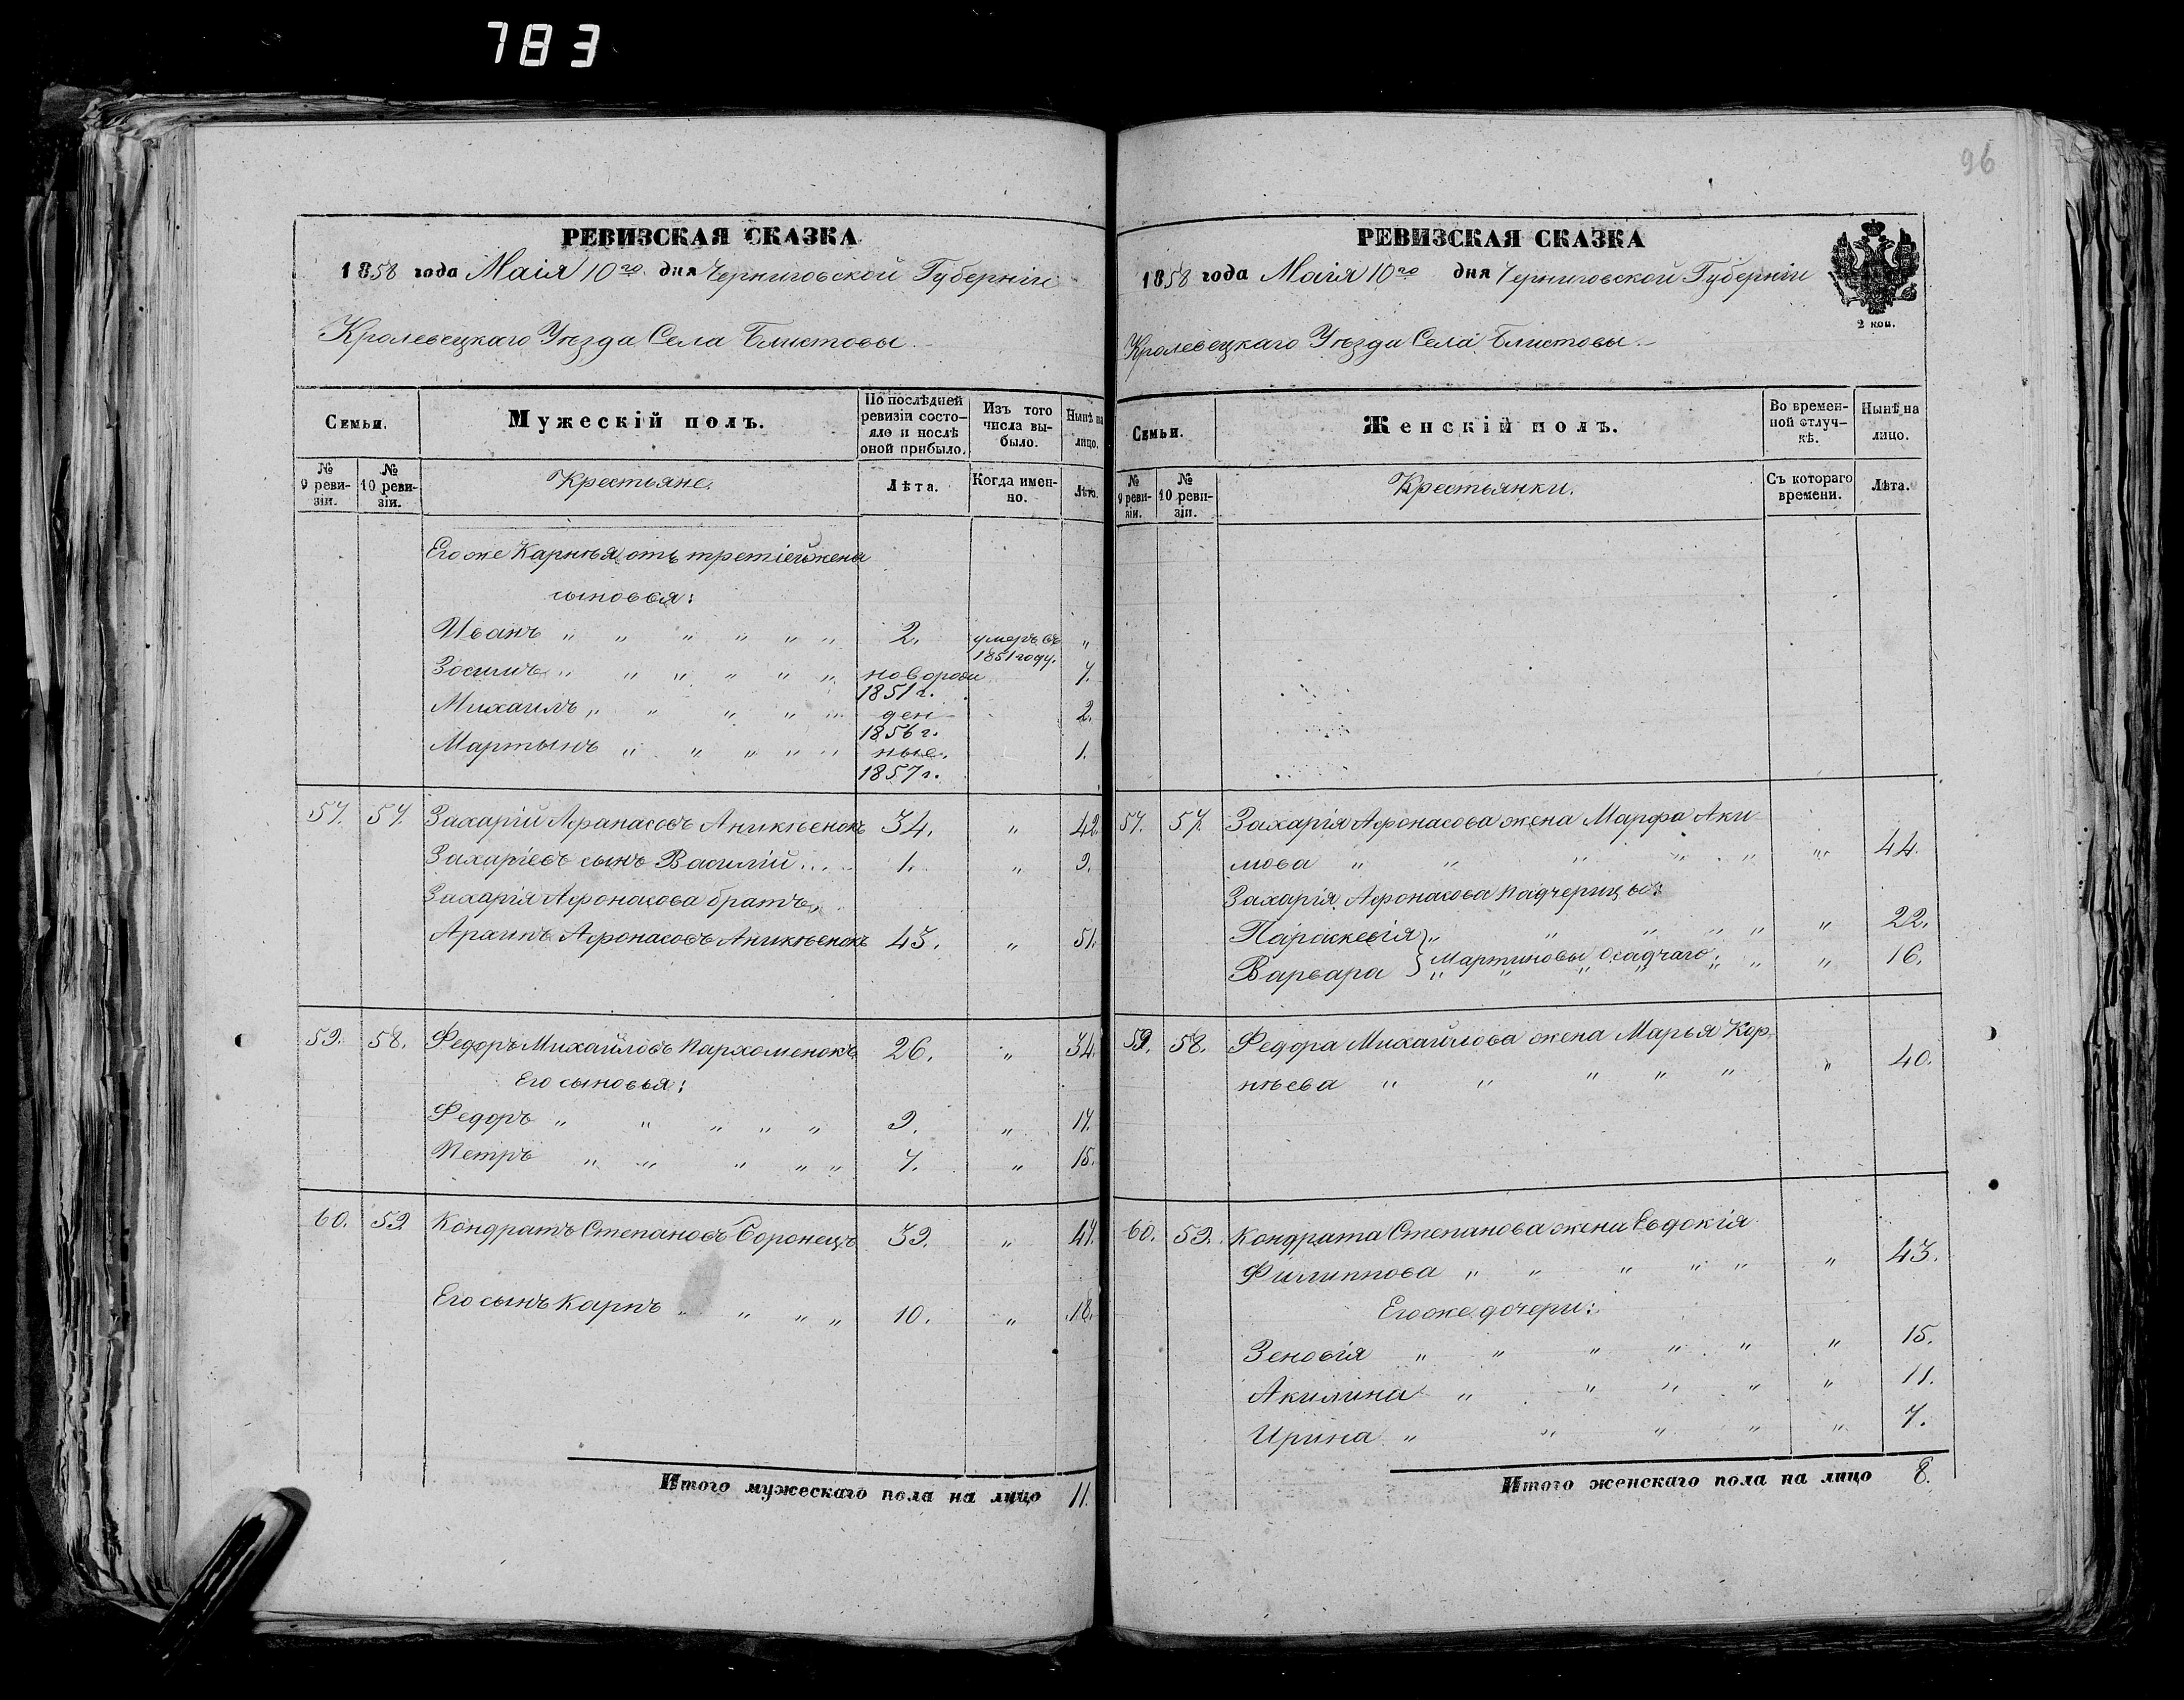 783
РЕВИЗСКАЯ СКАЗКА
1858 года Маія 10го дня Черниговской Губерніи
Кролевецкаго Уѣзда Села Блистовы.
Семьи.
Мужескій полъ.
По послѣдней ревизіи состояло и послѣ оной прибыло.
Изъ того числа выбыло.
Нынѣ на лицо.
№ 9 ревизіи.
№ 10 ревизіи.
Крестьяне.
Лѣта.
Когда именно.
Лѣта.
Его же Карнѣя отъ третіей жены
сыновья:
Иванъ " " " " " " 2. умеръ въ 1851 году. "
Зосимъ " " " " " " новорож 1851 г. 7.
Михаилъ " " " " " ден 1856 г. 2.
Мартынъ " " " " " ные. 1857 г. 1.
57. 57. Захарій Афанасовъ Аникѣенокъ 34. " 42.
Захаріевъ сынъ Василій . . . . 1. " 9.
Захарія Афонасова братъ,
Архипъ Афонасовъ Аникѣенокъ 43. " 51.
59. 58. Федоръ Михайловъ Пархоменокъ 26. " 34.
Его сыновья:
Федоръ " " " " " 9. " 17.
Петръ " " " " " 7. " 15.
60. 59 Кондратъ Степановъ Воронецъ 39. " 47.
Его сынъ Карпъ " " " " 10. " 18.
Итого мужескаго пола на лицо 11.
96
РЕВИЗСКАЯ СКАЗКА
1858 года Маія 10го дня Черниговской Губерніи
2 коп.
Кролевецкаго Уѣзда Села Блистовы.
Семьи.
Женскій полъ.
Во временной отлучкѣ.
Нынѣ на лицо.
№ 9 ревизіи.
№ 10 ревизіи.
Крестьянки.
Съ котораго времени.
Лѣта.
57. 57. Захарія Афонасова жена Марфа Аки
мова " " " " " " 44.
Захарія Афонасова падчерицы:
Параскевія " " " " " " 22.
Варвара } Мартиновы Осадчаго " " 16.
59. 58. Федора Михайлова жена Марья Кор
нѣева " " " " " " 40.
60. 59. Кондрата Степанова жена Евдокія
Филиппова " " " " " " 43.
Его же дочери:
Зеновія " " " " " " 15.
Акилина " " " " " 11.
Ирина " " " " " 7.
Итого женскаго пола на лицо 8.